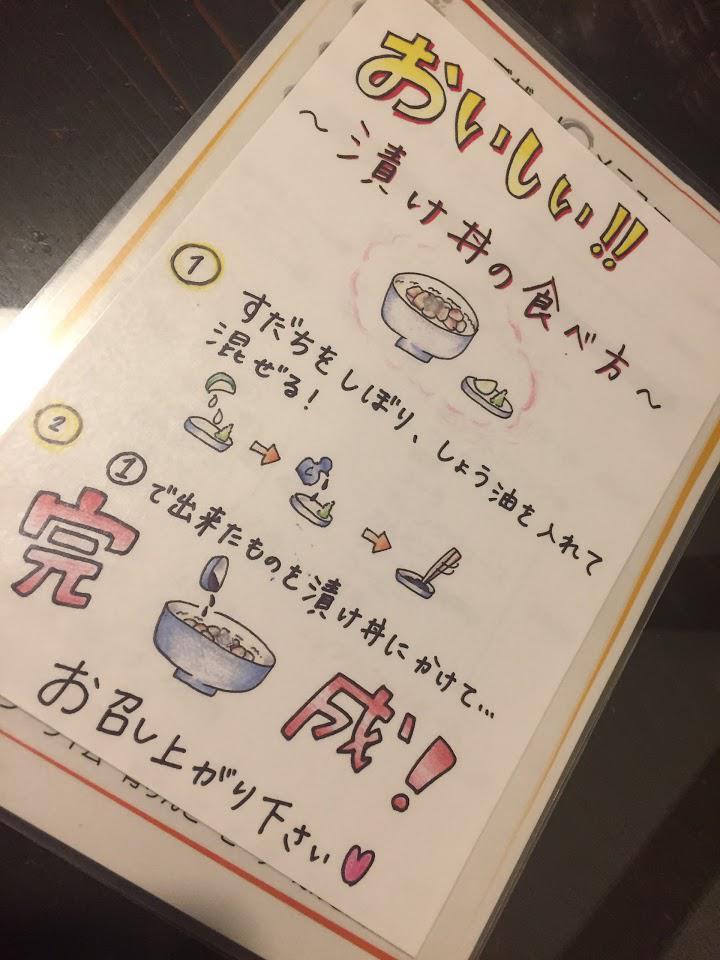 おいしい!!
～漬け丼の食べ方～
① すだちをしぼり、しょう油を入れて
混ぜる!
② ①で出来たものを漬け丼にかけて…
完成!
お召し上がり下さい♥